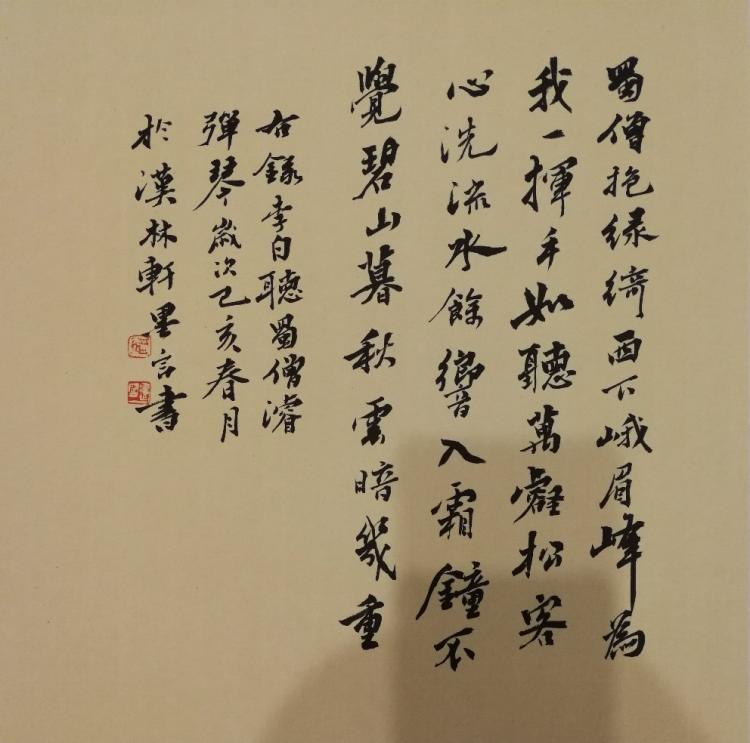 蜀僧抱緑綺西下峨眉峰為
我一揮手如聽萬壑松客
心洗流水餘響入霜鐘不
覺碧山暮秋雲暗幾重
右錄李白聽蜀僧濬
彈琴歲次己亥春月
於漢林軒墨言書